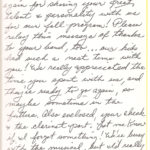 again for sharing your great
talent & personality with me
in our fall program. Please
relay this message of thanks
to your band, too... our kids
had such a neat time with
you! We really appreciated the
time you spent with us, and
they're ready to go again, so
maybe sometime in the
future. Also enclosed, your check
& the clarinet. Let me know
if I forgot something. We're busy
with the musical, but did really